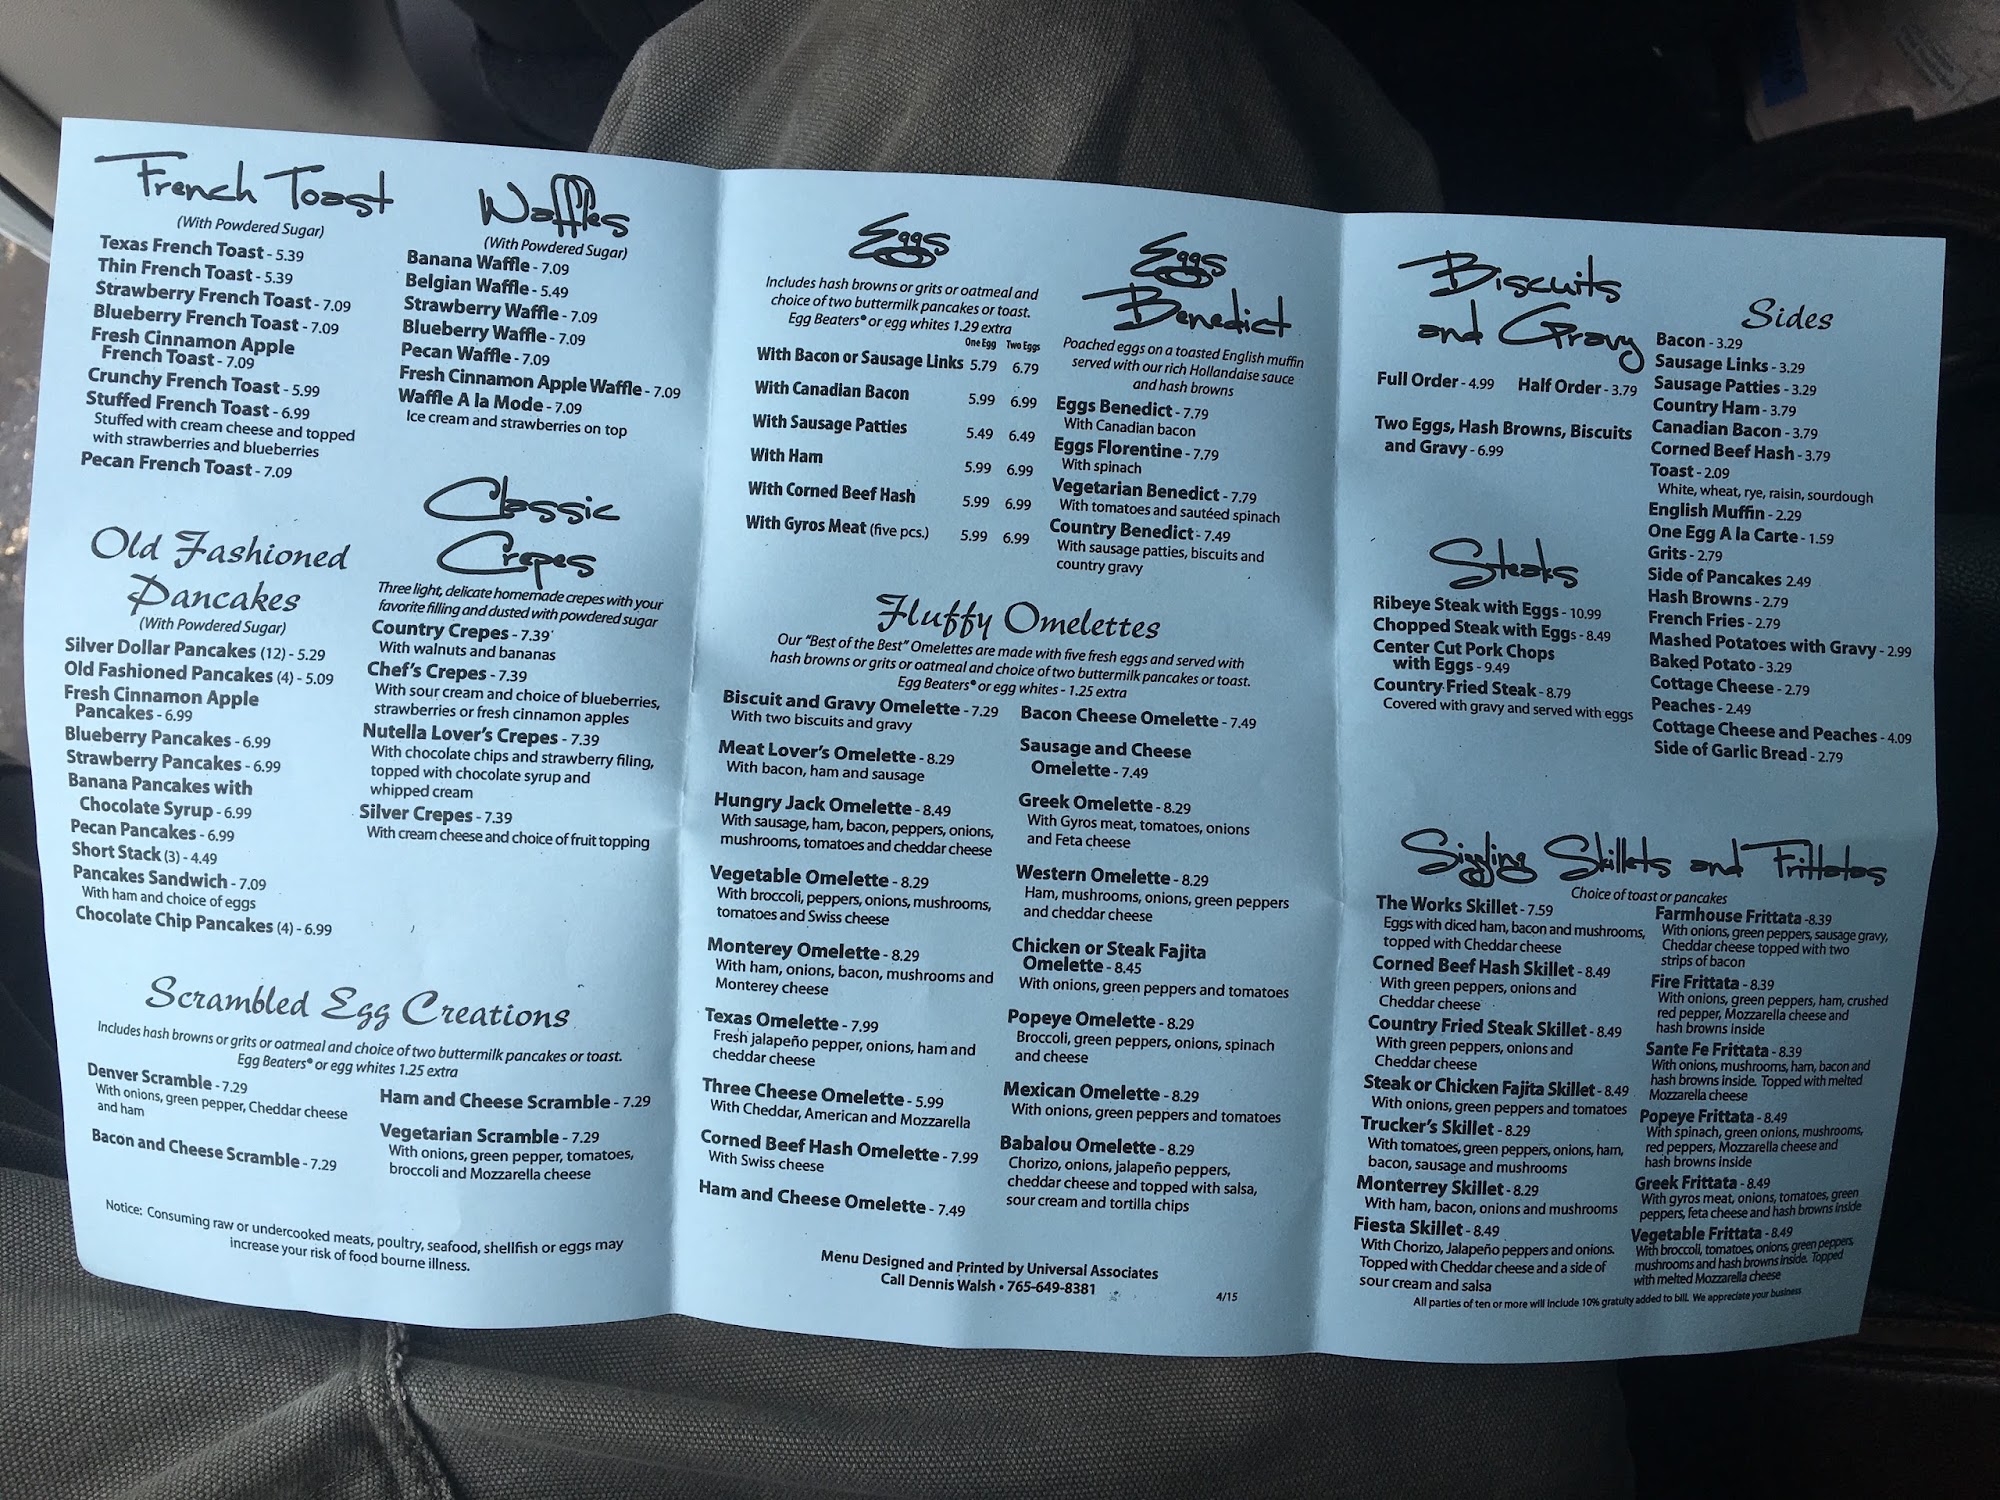 French Toast
(With Powdered Sugar)
Texas French Toast - 5.39
Thin French Toast - 5.39
Strawberry French Toast - 7.09
Blueberry French Toast - 7.09
Fresh Cinnamon Apple
French Toast - 7.09
Crunchy French Toast - 5.99
Stuffed French Toast - 6.99
Stuffed with cream cheese and topped
with strawberries and blueberries
Pecan French Toast - 7.09
Waffles
(With Powdered Sugar)
Banana Waffle - 7.09
Belgian Waffle - 5.49
Strawberry Waffle - 7.09
Blueberry Waffle - 7.09
Pecan Waffle - 7.09
Fresh Cinnamon Apple Waffle - 7.09
Waffle A la Mode - 7.09
Ice cream and strawberries on top
Old Fashioned
Pancakes
(With Powdered Sugar)
Silver Dollar Pancakes (12) - 5.29
Old Fashioned Pancakes (4) - 5.09
Fresh Cinnamon Apple
Pancakes - 6.99
Blueberry Pancakes - 6.99
Strawberry Pancakes - 6.99
Banana Pancakes with
Chocolate Syrup - 6.99
Pecan Pancakes - 6.99
Short Stack (3) - 4.49
Pancakes Sandwich - 7.09
With ham and choice of eggs
Chocolate Chip Pancakes (4) - 6.99
Classic
Crepes
Three light, delicate homemade crepes with your
favorite filling and dusted with powdered sugar
Country Crepes - 7.39
With walnuts and bananas
Chef's Crepes - 7.39
With sour cream and choice of blueberries,
strawberries or fresh cinnamon apples
Nutella Lover's Crepes - 7.39
With chocolate chips and strawberry filing,
topped with chocolate syrup and
whipped cream
Silver Crepes - 7.39
With cream cheese and choice of fruit topping
Scrambled Egg Creations
Includes hash browns or grits or oatmeal and choice of two buttermilk pancakes or toast.
Egg Beaters® or egg whites 1.25 extra
Denver Scramble - 7.29
With onions, green pepper, Cheddar cheese
and ham
Bacon and Cheese Scramble - 7.29
Ham and Cheese Scramble - 7.29
Vegetarian Scramble - 7.29
With onions, green pepper, tomatoes,
broccoli and Mozzarella cheese
Notice: Consuming raw or undercooked meats, poultry, seafood, shellfish or eggs may
increase your risk of food bourne illness.
Eggs
Includes hash browns or grits or oatmeal and
choice of two buttermilk pancakes or toast.
Egg Beaters® or egg whites 1.29 extra
One Egg Two Eggs
With Bacon or Sausage Links 5.79 6.79
With Canadian Bacon 5.99 6.99
With Sausage Patties 5.49 6.49
With Ham 5.99 6.99
With Corned Beef Hash 5.99 6.99
With Gyros Meat (five pcs.) 5.99 6.99
Eggs
Benedict
Poached eggs on a toasted English muffin
served with our rich Hollandaise sauce
and hash browns
Eggs Benedict - 7.79
With Canadian bacon
Eggs Florentine - 7.79
With spinach
Vegetarian Benedict - 7.79
With tomatoes and sautéed spinach
Country Benedict - 7.49
With sausage patties, biscuits and
country gravy
Fluffy Omelettes
Our "Best of the Best" Omelettes are made with five fresh eggs and served with
hash browns or grits or oatmeal and choice of two buttermilk pancakes or toast.
Egg Beaters® or egg whites - 1.25 extra
Biscuit and Gravy Omelette - 7.29
With two biscuits and gravy
Meat Lover's Omelette - 8.29
With bacon, ham and sausage
Hungry Jack Omelette - 8.49
With sausage, ham, bacon, peppers, onions,
mushrooms, tomatoes and cheddar cheese
Vegetable Omelette - 8.29
With broccoli, peppers, onions, mushrooms,
tomatoes and Swiss cheese
Monterey Omelette - 8.29
With ham, onions, bacon, mushrooms and
Monterey cheese
Texas Omelette - 7.99
Fresh jalapeño pepper, onions, ham and
cheddar cheese
Three Cheese Omelette - 5.99
With Cheddar, American and Mozzarella
Corned Beef Hash Omelette - 7.99
With Swiss cheese
Ham and Cheese Omelette - 7.49
Bacon Cheese Omelette - 7.49
Sausage and Cheese
Omelette - 7.49
Greek Omelette - 8.29
With Gyros meat, tomatoes, onions
and Feta cheese
Western Omelette - 8.29
Ham, mushrooms, onions, green peppers
and cheddar cheese
Chicken or Steak Fajita
Omelette - 8.45
With onions, green peppers and tomatoes
Popeye Omelette - 8.29
Broccoli, green peppers, onions, spinach
and cheese
Mexican Omelette - 8.29
With onions, green peppers and tomatoes
Babalou Omelette - 8.29
Chorizo, onions, jalapeño peppers,
cheddar cheese and topped with salsa,
sour cream and tortilla chips
Menu Designed and Printed by Universal Associates
Call Dennis Walsh • 765-649-8381
4/15
Biscuits
and Gravy
Full Order - 4.99 Half Order - 3.79
Two Eggs, Hash Browns, Biscuits
and Gravy - 6.99
Steaks
Ribeye Steak with Eggs - 10.99
Chopped Steak with Eggs - 8.49
Center Cut Pork Chops
with Eggs - 9.49
Country Fried Steak - 8.79
Covered with gravy and served with eggs
Sides
Bacon - 3.29
Sausage Links - 3.29
Sausage Patties - 3.29
Country Ham - 3.79
Canadian Bacon - 3.79
Corned Beef Hash - 3.79
Toast - 2.09
White, wheat, rye, raisin, sourdough
English Muffin - 2.29
One Egg A la Carte - 1.59
Grits - 2.79
Side of Pancakes 2.49
Hash Browns - 2.79
French Fries - 2.79
Mashed Potatoes with Gravy - 2.99
Baked Potato - 3.29
Cottage Cheese - 2.79
Peaches - 2.49
Cottage Cheese and Peaches - 4.09
Side of Garlic Bread - 2.79
Sizzling Skillets and Frittatas
Choice of toast or pancakes
The Works Skillet - 7.59
Eggs with diced ham, bacon and mushrooms,
topped with Cheddar cheese
Corned Beef Hash Skillet - 8.49
With green peppers, onions and
Cheddar cheese
Country Fried Steak Skillet - 8.49
With green peppers, onions and
Cheddar cheese
Steak or Chicken Fajita Skillet - 8.49
With onions, green peppers and tomatoes
Trucker's Skillet - 8.29
With tomatoes, green peppers, onions, ham,
bacon, sausage and mushrooms
Monterrey Skillet - 8.29
With ham, bacon, onions and mushrooms
Fiesta Skillet - 8.49
With Chorizo, Jalapeño peppers and onions.
Topped with Cheddar cheese and a side of
sour cream and salsa
Farmhouse Frittata -8.39
With onions, green peppers, sausage gravy,
Cheddar cheese topped with two
strips of bacon
Fire Frittata - 8.39
With onions, green peppers, ham, crushed
red pepper, Mozzarella cheese and
hash browns inside
Sante Fe Frittata - 8.39
With onions, mushrooms, ham, bacon and
hash browns inside. Topped with melted
Mozzarella cheese
Popeye Frittata - 8.49
With spinach, green onions, mushrooms,
red peppers, Mozzarella cheese and
hash browns inside
Greek Frittata - 8.49
With gyros meat, onions, tomatoes, green
peppers, feta cheese and hash browns inside
Vegetable Frittata - 8.49
With broccoli, tomatoes, onions, green peppers,
mushrooms and hash browns inside. Topped
with melted Mozzarella cheese
All parties of ten or more will include 10% gratuity added to bill. We appreciate your business